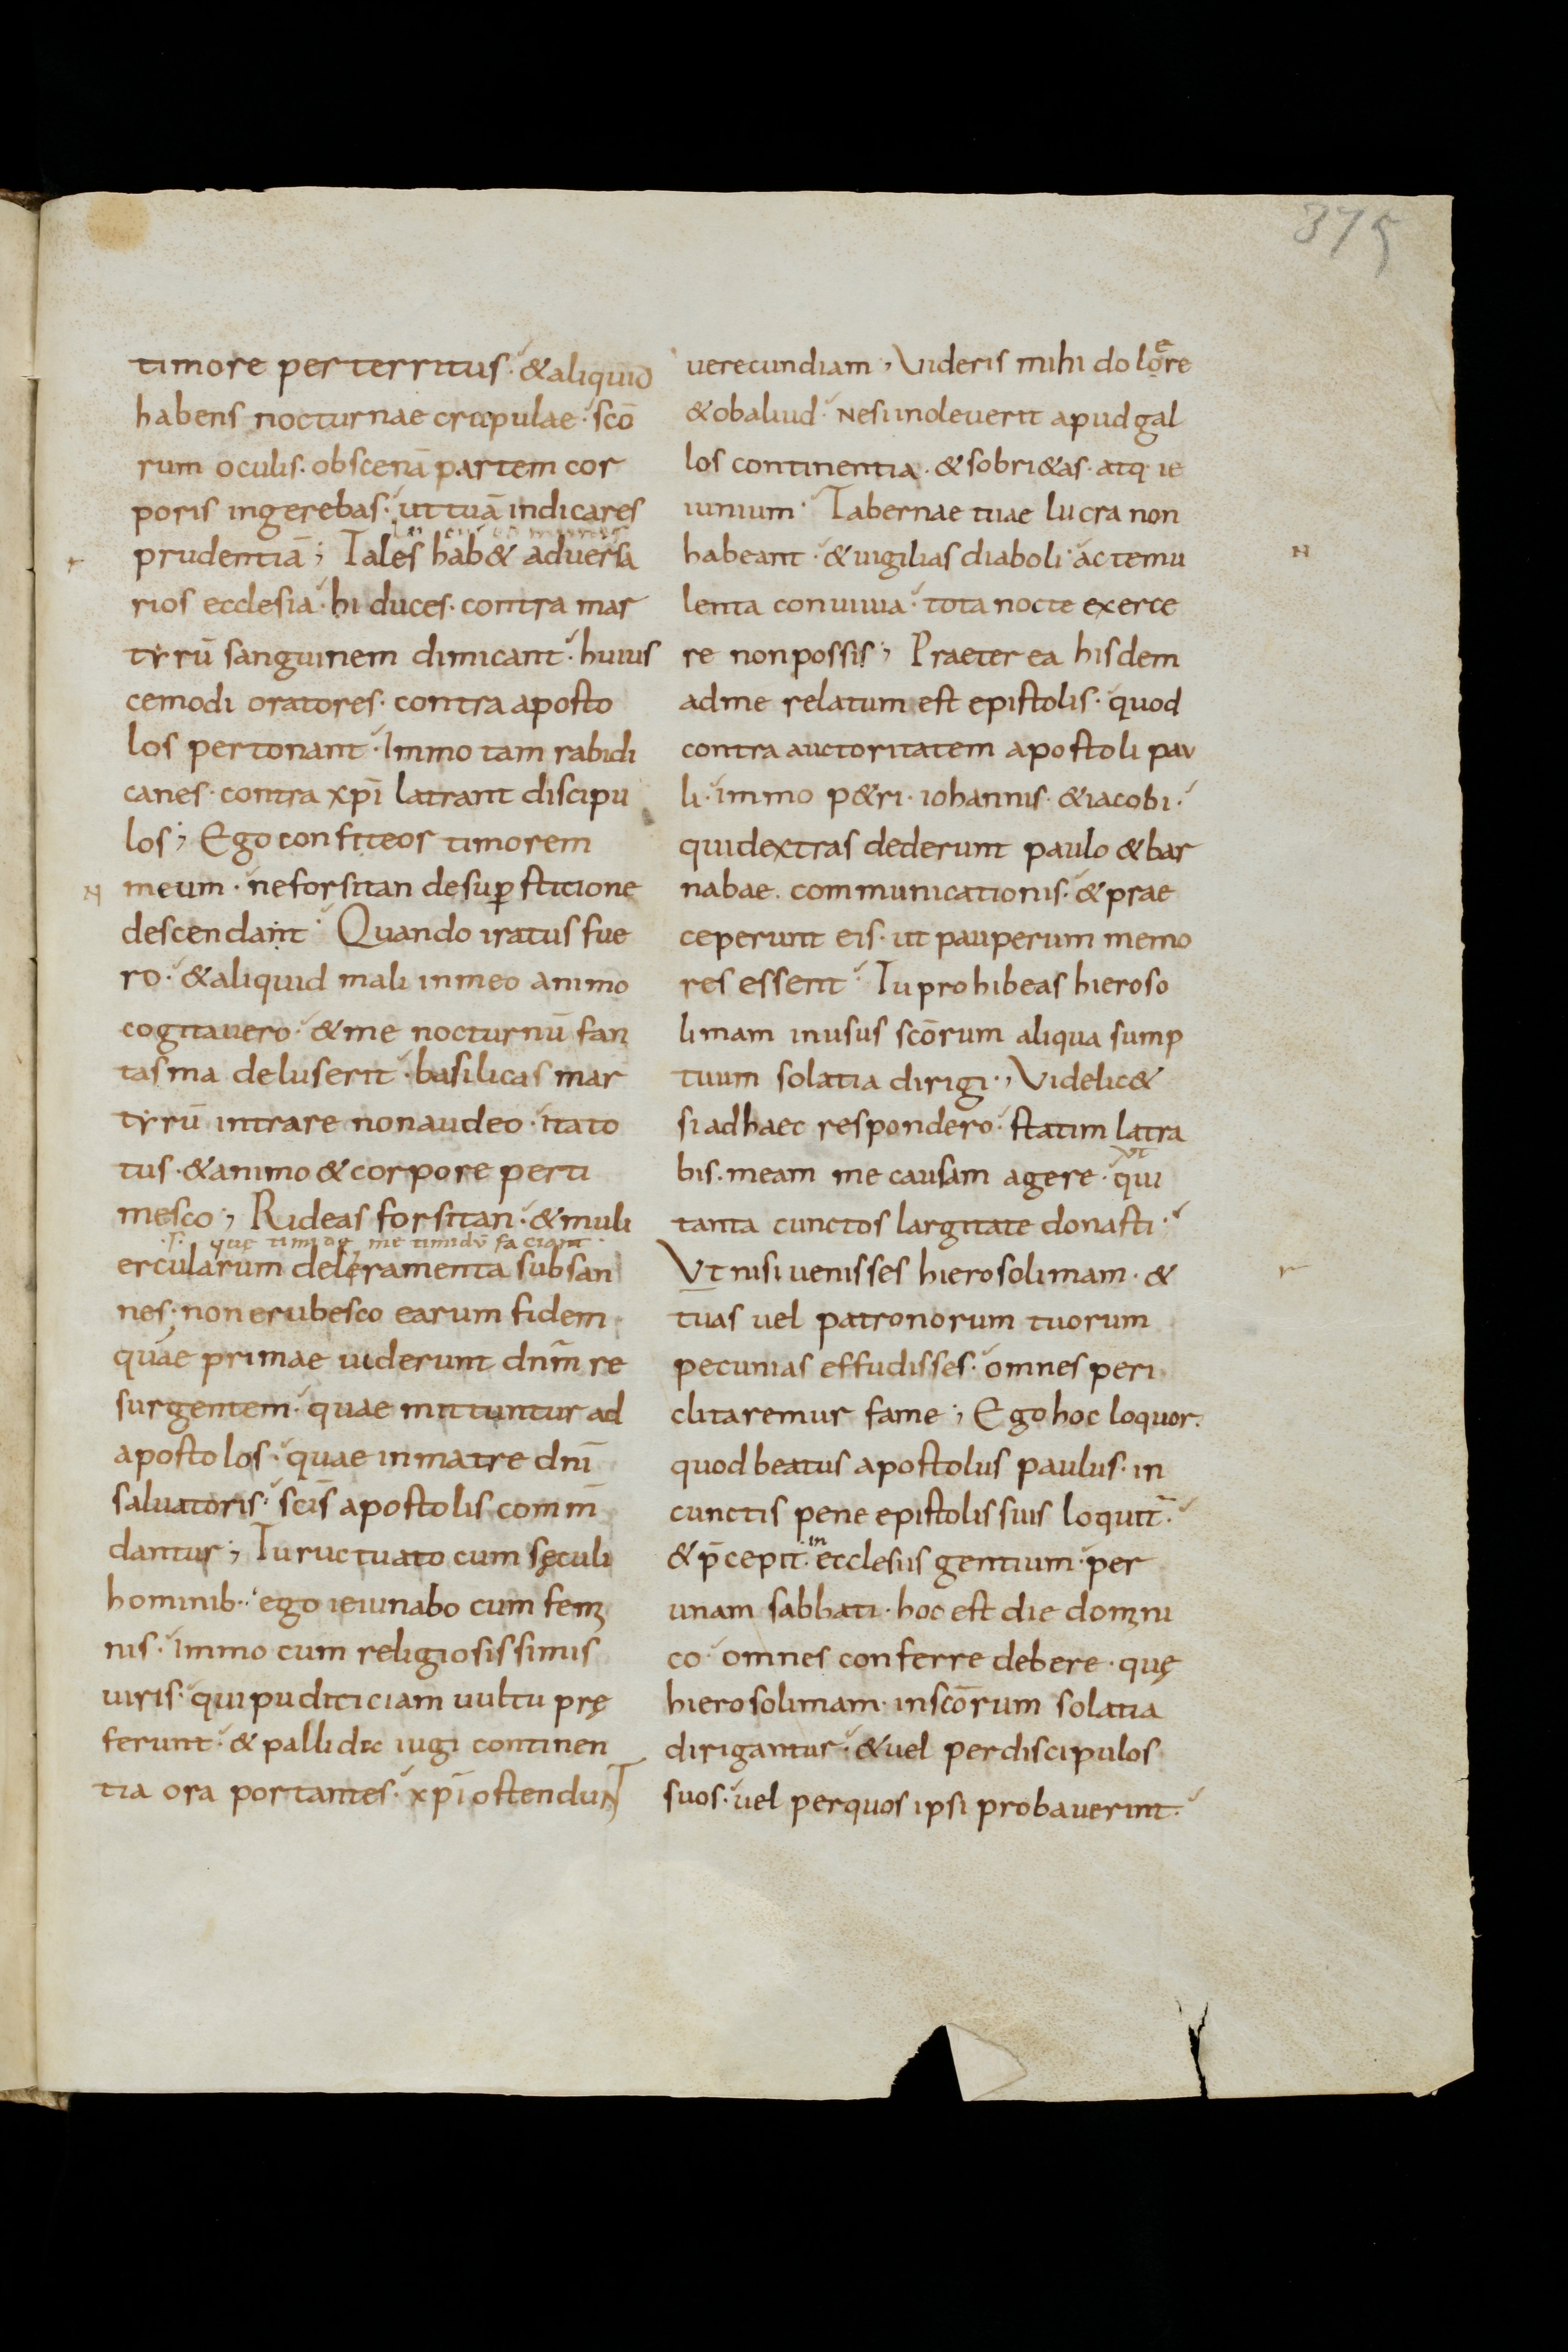 375
timore perterritus · & aliquid
habens nocturnae crapulae · scō
rum oculis · obscenā partem cor
poris ingerebas · ut tuā indicares
prudentiā ; Tales hab& adversa
rios ecclesia · hi duces · contra mar
tẏrū sanguinem dimicant · huius
cemodi oratores · contra aposto
los pertonant · Immo tam rabidi
canes · contra xp̄i latrant discipu
los ; Ego confiteor timorem
meum · ne forsitan de suꝑstitione
descendant · Quando iratus fue
ro · & aliquid mali in meo animo
cogitauero · & me nocturnū fan
tasma deluserit · basilicas mar
tẏrū intrare non audeo · ita to
tus · & animo & corpore perti
mesco ; Rideas forsitan · & muli
·s· quę timidę me timidū faciant ·
ercularum deleramenta subsan
nes · non erubesco earum fidem
quae primae uiderunt dn̄m re
surgentem · quae mittuntur ad
apostolos · quae in matre dn̄i
saluatoris · sc̄is apostolis comm̄
dantur ; Tu ructuato cum sęculi
hominib· · ego ieiunabo cum femi
nis · Immo cum religiosissimis
uiris · qui pudiciciam uultu prę
ferunt · & pallida iugi continen
tia ora portantes · xp̄i ostendunt
uerecundiam ; Videris mihi dolore
e
& ob aliud · Ne si inoleuerit apud gal
los continentia · & sobri&as · atq· ie
iunium · Tabernae tuae lucra non
habeant · & uigilias diaboli · ac temu
N
lenta conuiuia · tota nocte exerce
re non possis ; Praeterea hisdem
ad me relatum est epistolis · quod
contra auctoritatem apostoli pau
li · immo p&ri · iohannis · & iacobi ·
qui dextras dederunt paulo & bar
nabae · communicationis · & prae
ceperunt eis · ut pauperum memo
res essent · Tu prohibeas hieroso
limam in usus scōrum aliqua sump
tuum solatia dirigi · ; Videlic&
si ad haec respondero · statim latra
bis · meam me causam agere · qui
tanta cunctos largitate donasti ·
Vt nisi uenisses hierosolimam · &
r
tuas uel patronorum tuorum
pecunias effudisses · omnes peri
clitaremur fame ; Ego hoc loquor ·
quod beatus apostolus paulus · in
cunctis pene epistolis suis loquit̄ ·
in
& p̄cepit · ecclesiis gentium · per
unam sabbati · hoc est die domini
co · omnes conferre debere · quę
hierosolimam · in scōrum solatia
dirigantur · & uel per discipulos
suos · uel per quos ipsi probauerint ·